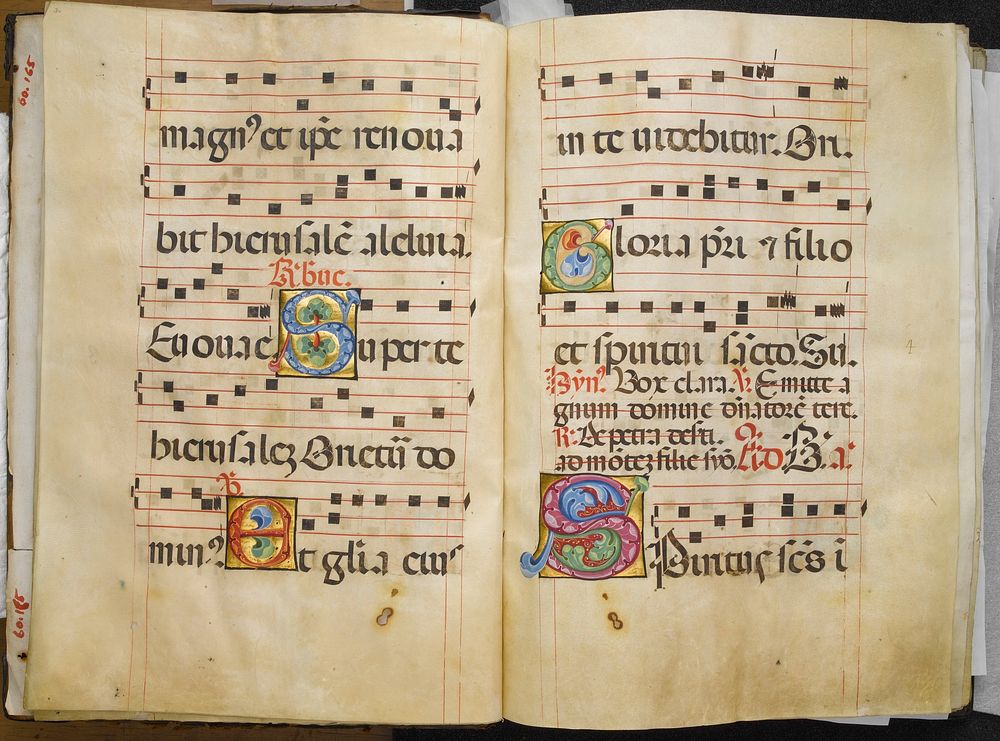 60.165
magnꝰ et ip̃e renoua
bit hierusalẽ aleluia.
R. bue.
Euouae Super te
hierusalez Orietũ do
minꝰ? V.
Et gl̃ia eius
60.165
in te uidebitur. Ori.
Gloria pr̃i ⁊ filio
et spiritui sc̃to. Su.
Hynꝰ. Vox clara. V. Emitte a
gnum domine dñatorẽ terre.
R. De petra deserti.
ad mõtez filie syõ. Ad. B. a.
Spiritus sc̃s i
4